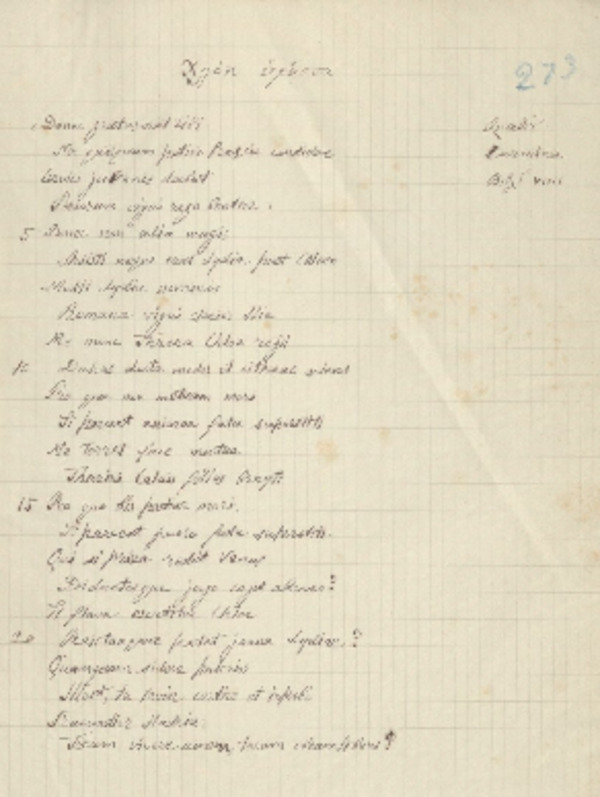 273
Donec gratus eram tibi
Nec quisquam potior bracchia candidae
Cervici juvenis dabat
Persarum vigui rege beatior.
5 Donec non alia magis
neque erat Lydia post Chloen
Multi Lydia nominis
Romana vigui clarior Ilia
Me nunc Thressa Chloe regit
10 Dulces docta modos et citharae sciens
Pro qua non metuam mori
Si parcent animae fata superstiti
Me torret face mutua
Calais filius Ornyti
15 Pro quo bis patiar mori
Si parcent puero fata superstiti.
Quid si prisca redit Venus
Diductosque jugo cogit aheneo?
Si flava excutitur Chloe
20 Rejectaeque patet janua Lydiae?
Quamquam sidere pulcrior
Ille est, tu levior cortice et
Iracundior Hadria
Tecum vivere amem, tecum obeam libens!